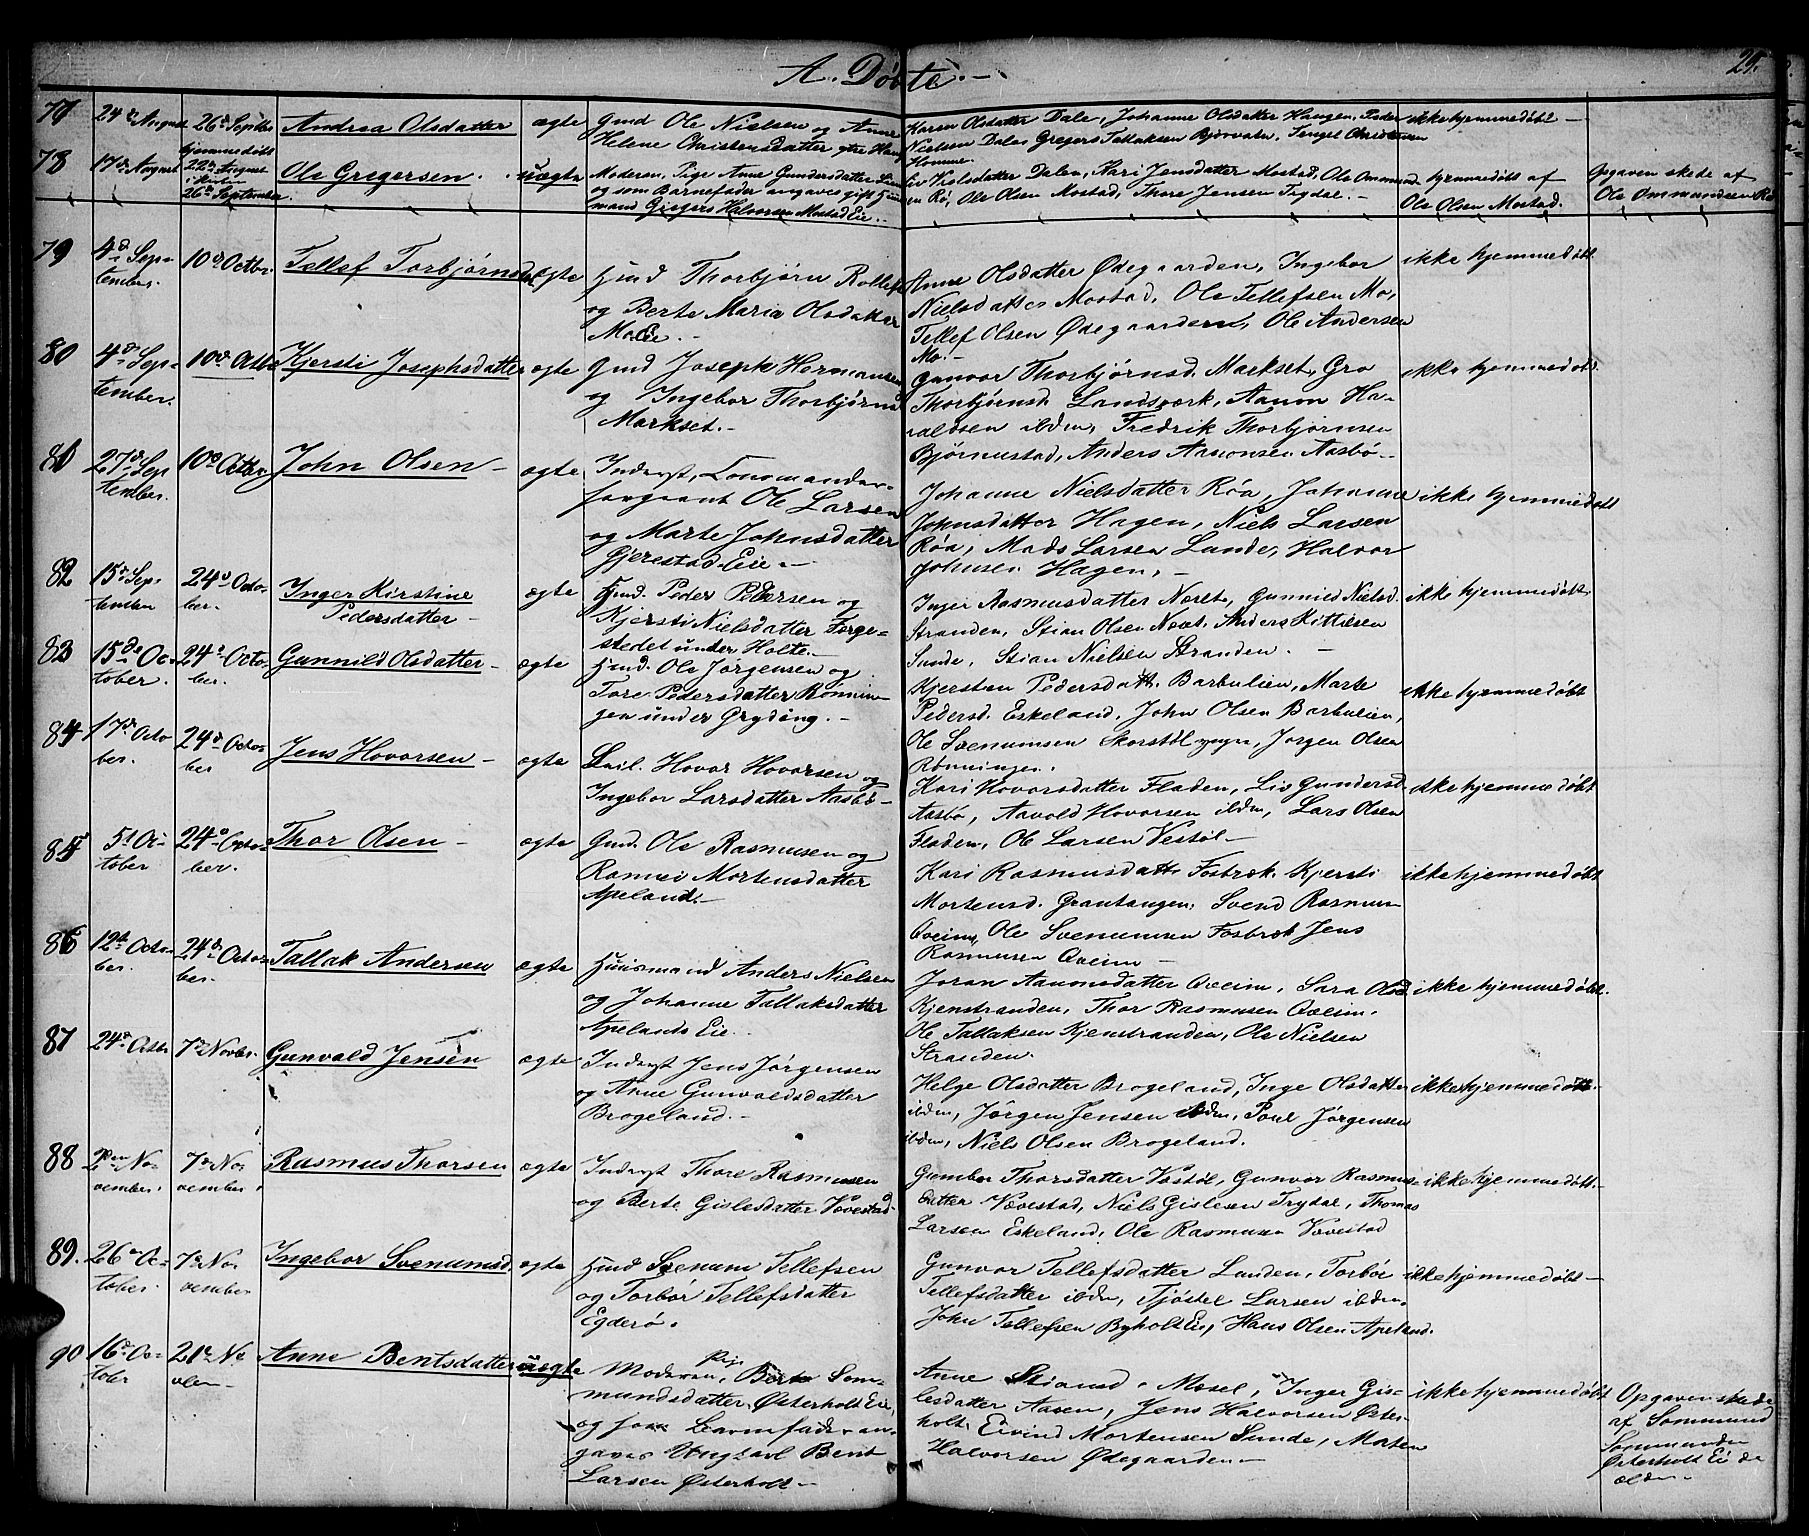 A. Døbte.
29.
77 24de August 26de Septbr Andrea Olsdatter ægte Gmd Ole Nielsen og Anne
Helene Christensdatter
Karen Olsdatter Dale, Johanne Olsdatter Haugen, Peder
Nielsen Dale, Gregers Tallaksen Bjorvatn, Tengel Christensen
Homme.
ikke hjemmedøbt –
78 17de August hjemmedøbt
22de August
26de September.
Ole Gregersen. uægte Moderen, Pige Anne Gundersdatter
og som Barnefader angaves gift Huus-
mand Gregers Halvorsen Mostad Eie. –
Liv Nielsdatter Dalen, Kari Jensdatter Mostad, Ole Ommund-
sen Rø, Ole Olsen Mostad, Thore Jensen Trydal. –
hjemmedøbt af
Ole Olsen Mostad.
Opgaven skede af
Ole Ommundsen Rø
79 4de Sep-
tember. 10de Octbr. Tellef Torbjørnsen ægte Huusd Thorbjørn Rollefs
og Berte Maria Olsdatter
Mo Eie. –
Anne Olsdatter Ødegaarden, Ingebor
Nielsdatter Mostad, Ole Tellefsen Mo,
Tellef Olsen Ødegaarden, Ole Andersen
Mo. –
ikke hjemmedøbt
80 4de Sep-
tember. 10de Octbr Kjersti Josephsdatter ægte Gmd Joseph Hermansen
og Ingebor Thorbjørnsd
Markset. –
Gunvor Thorbjørnsd. Markset, Gro
Thorbjørnsd. Landsverk, Aanon Ha-
raldsen ibdm, Fredrik Thorbjørnsen
Bjørnestad, Anders Aanonsen Aasbø. –
ikke hjemmedøbt.
81 27de Sep
tember. 10de Octbr John Olsen – ægte Inderst, Commandeer-
sergeant Ole Larsen
og Marte Johnsdatter
Gjerestad Eie. –
Johanne Nielsdatter Røa, Johanne
Johnsdatter Hagen, Niels Larsen
Røa, Mads Larsen Lunde, Halvor
Johnsen Hagen. –
ikke hjemmedøbt
82 15de Sep-
tember 24de Octo-
ber. Inger Kirstine
Pedersdatter – ægte Hmd. Peder Pedersen og
Kjersti Nielsdatter Torge-
stedet under Holte. –
Inger Rasmusdatter Næret, Gunnild Nielsd.
Stranden, Stian Olsen Næret, Anders Kittilsen
Sunde, Stian Nielsen Stranden. –
ikke hjemmedøbt
83 15de Oc-
tober. 24de Octo-
ber. Gunnild Olsdatter – ægte Hmd. Ole Jørgensen og
Tore Pedersdatter Rønnin-
gen under Gryting. –
Kjersten Pedersdatt. Barbulien, Marte
Pedersd. Eskeland, John Olsen Barbulien,
Ole Svenumsen Skorstøl yngre, Jørgen Olsen
Rønningen.
ikke hjemmedøbt
84 17de Octo
ber. 24de Octo-
ber Jens Hovorsen – ægte Hovor Hovorsen og
Ingebor Larsdatter Aasbø –
Kari Hovorsdatter Fladen, Liv Gundersd.
Aasbø, Aavold Hovorsen ibdm, Lars Olsen
Fladen, Ole Larsen Vestøl –
ikke hjemmedøbt
85 5t Oc-
tober 24de Octo-
ber. Thor Olsen – ægte Gmd. Ole Rasmusen og
Ronnei Mortensdatter
Apeland. –
Kari Rasmusdatt. Fosbræk, Kjersti
Mortensd. Grautangen, Svend Rasmus
Qveim, Ole Svenumsen Fosbræk Jens
Rasmusen Qveim –
ikke hjemmedøbt
86 12te Octo-
ber. 24de Octo-
ber. Tallak Andersen ægte Huusmand Anders Nielsen
og Johanne Tallaksdatter
Apelands Eie.
Joran Aanonsdatter Qveim, Sara Olsd.
Kjenstranden, Thor Rasmusen Qveim.
Ole Tallaksen Kjenstranden, Ole Nielsen
Stranden.
ikke hjemmedøbt.
87 24de Octbr 7de Novbr. Gunvald Jensen ægte Inderst Jens Jørgensen
og Anne Gunvaldsdatter
Brogeland. –
Helge Olsdatter Brogeland, Inge Olsdatter
ibdm, Jørgen Jensen ibdm, Poul Jørgensen
ibdm, Niels Olsen Brogeland.
ikke hjemmedøbt.
88 2den No-
vember. 7de No-
vember. Rasmus Thorsen ægte Inderst Thore Rasmusen
og Berte Gislesdatter Vævestad.
Gumbor Thorsdatter Vestøl, Gunvor Rasmus-
datter Vævestad, Niels Gislesen Trydal, Thomas
Larsen Eskeland, Ole Rasmusen Vævestad
ikke hjemmedøbt.
89. 26de Oc-
tober. 7de No-
vember Ingebor Svenumsd. ægte Hmd Svenum Tellefsen
og Torbør Tellefsdatter
Egderø.
Gunvor Tellefsdatter Lunden, Torbør
Tellefsdatter ibdm, Tjøstel Larsen ibdm.
John Tellefsen Byholt Eie, Hans Olsen Apeland.
ikke hjemmedøbt –
90 16de Oc-
tober 21de No
vbr – Anne Bentsdatter uægte Moderen, Pige Berte Som-
mundsdatter Østerholt Eie,
og som Barnefader an-
gaves Ungkarl Bent
Larsen Østerholt –
Anne Stiansd. Mosel, Inger Gis-
lesdatter Aasen, Jens Halvorsen Øster-
holt, Eivind Mortensen Sunde, Morten
Halvorsen Ødegaarden –
ikke hjemmedøbt
Opgaven skede
af Sommund
Sommundsen
Østerholt Eie de
ældre –